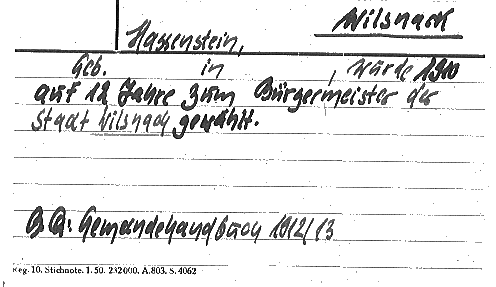 Wilsnack
Hassenstein,
Geb. in , wurde 1910
auf 12 Jahre zum Bürgermeister der
Stadt Wilsnack gewählt.
B Q: Gemeindehandbuch 1912/13
Reg. 10. Stichnote. 1. 50. 232000. A.803. S. 4062